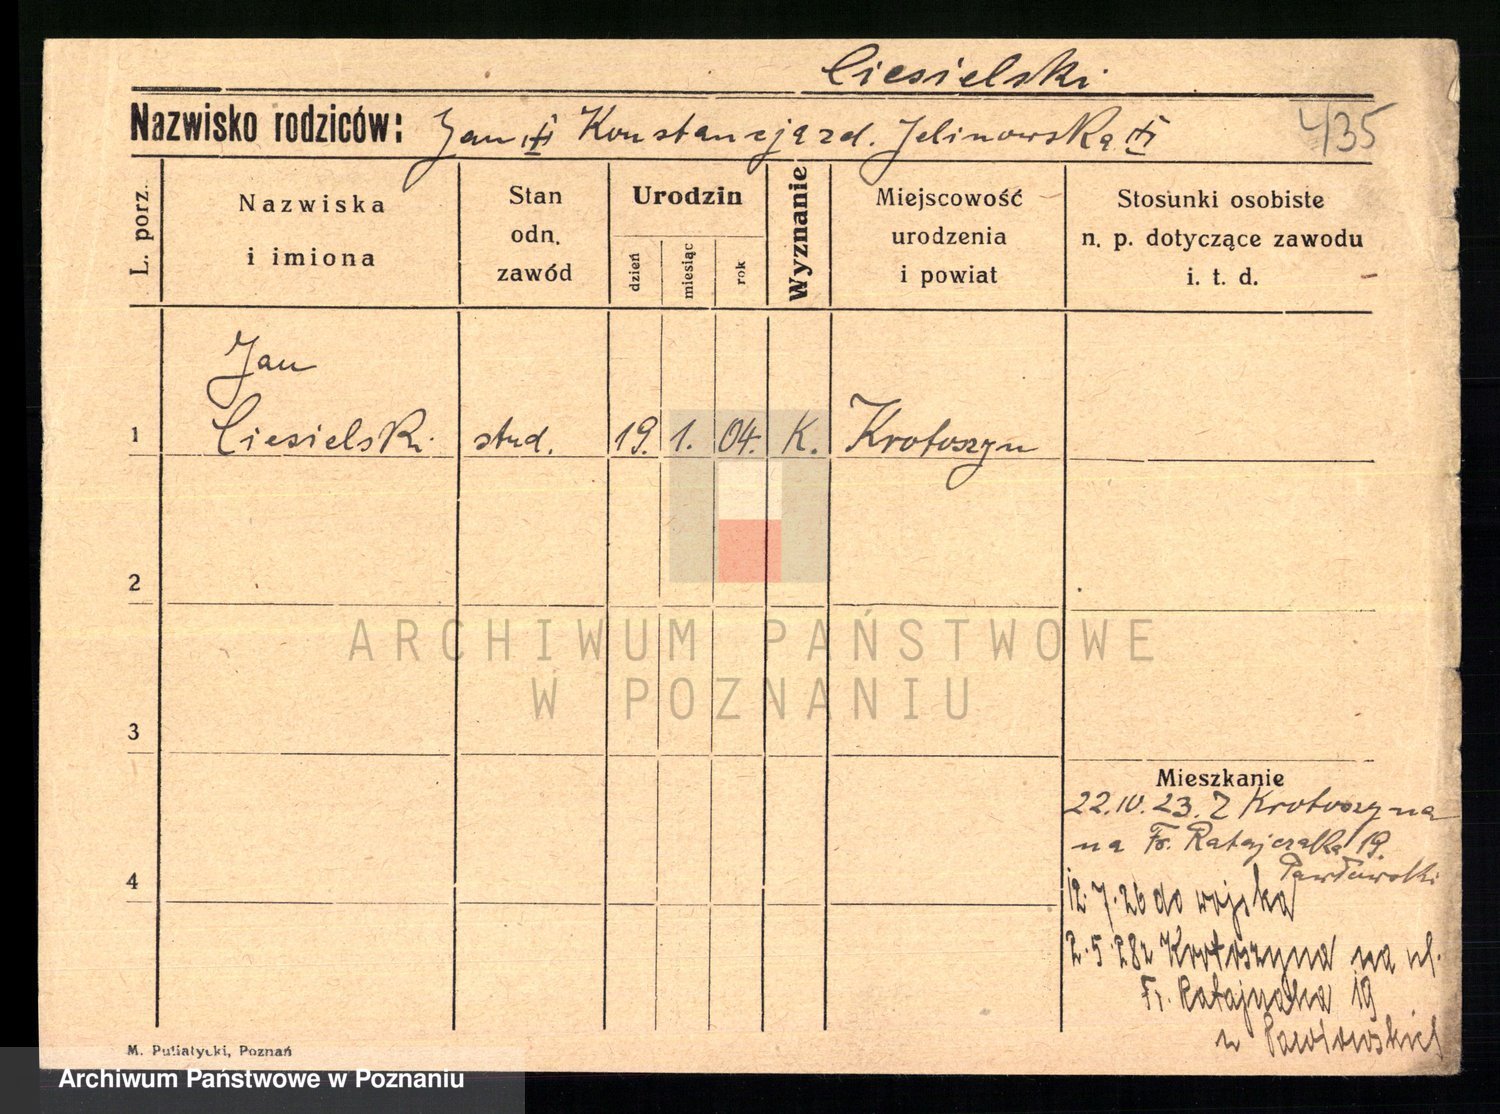 Ciesielski
Nazwisko rodziców: Jan Konstancja zd. Jelinowska
4/35
L. porz.
Nazwiska
i imiona
Stan
odn.
zawód
Urodzin
dzień
miesiąc
rok
Wyznanie
Miejscowość
urodzenia
i powiat
Stosunki osobiste
n. p. dotyczące zawodu
i. t. d.
Jan
1 Ciesielski stud. 19. 1. 04. K. Krotoszyn
2
ARCHIWUM PAŃSTWOWE
W POZNANIU
3
Mieszkanie
22.IV.23. Z Krotoszyna
na Fr. Ratajczaka 19.
Pawłowski
4
12.7.26 do wojska
2.5.28 z Krotoszyna na ul.
Fr. Ratajczaka 19
u Pawłowskich
M. Putiatycki, Poznań
Archiwum Państwowe w Poznaniu